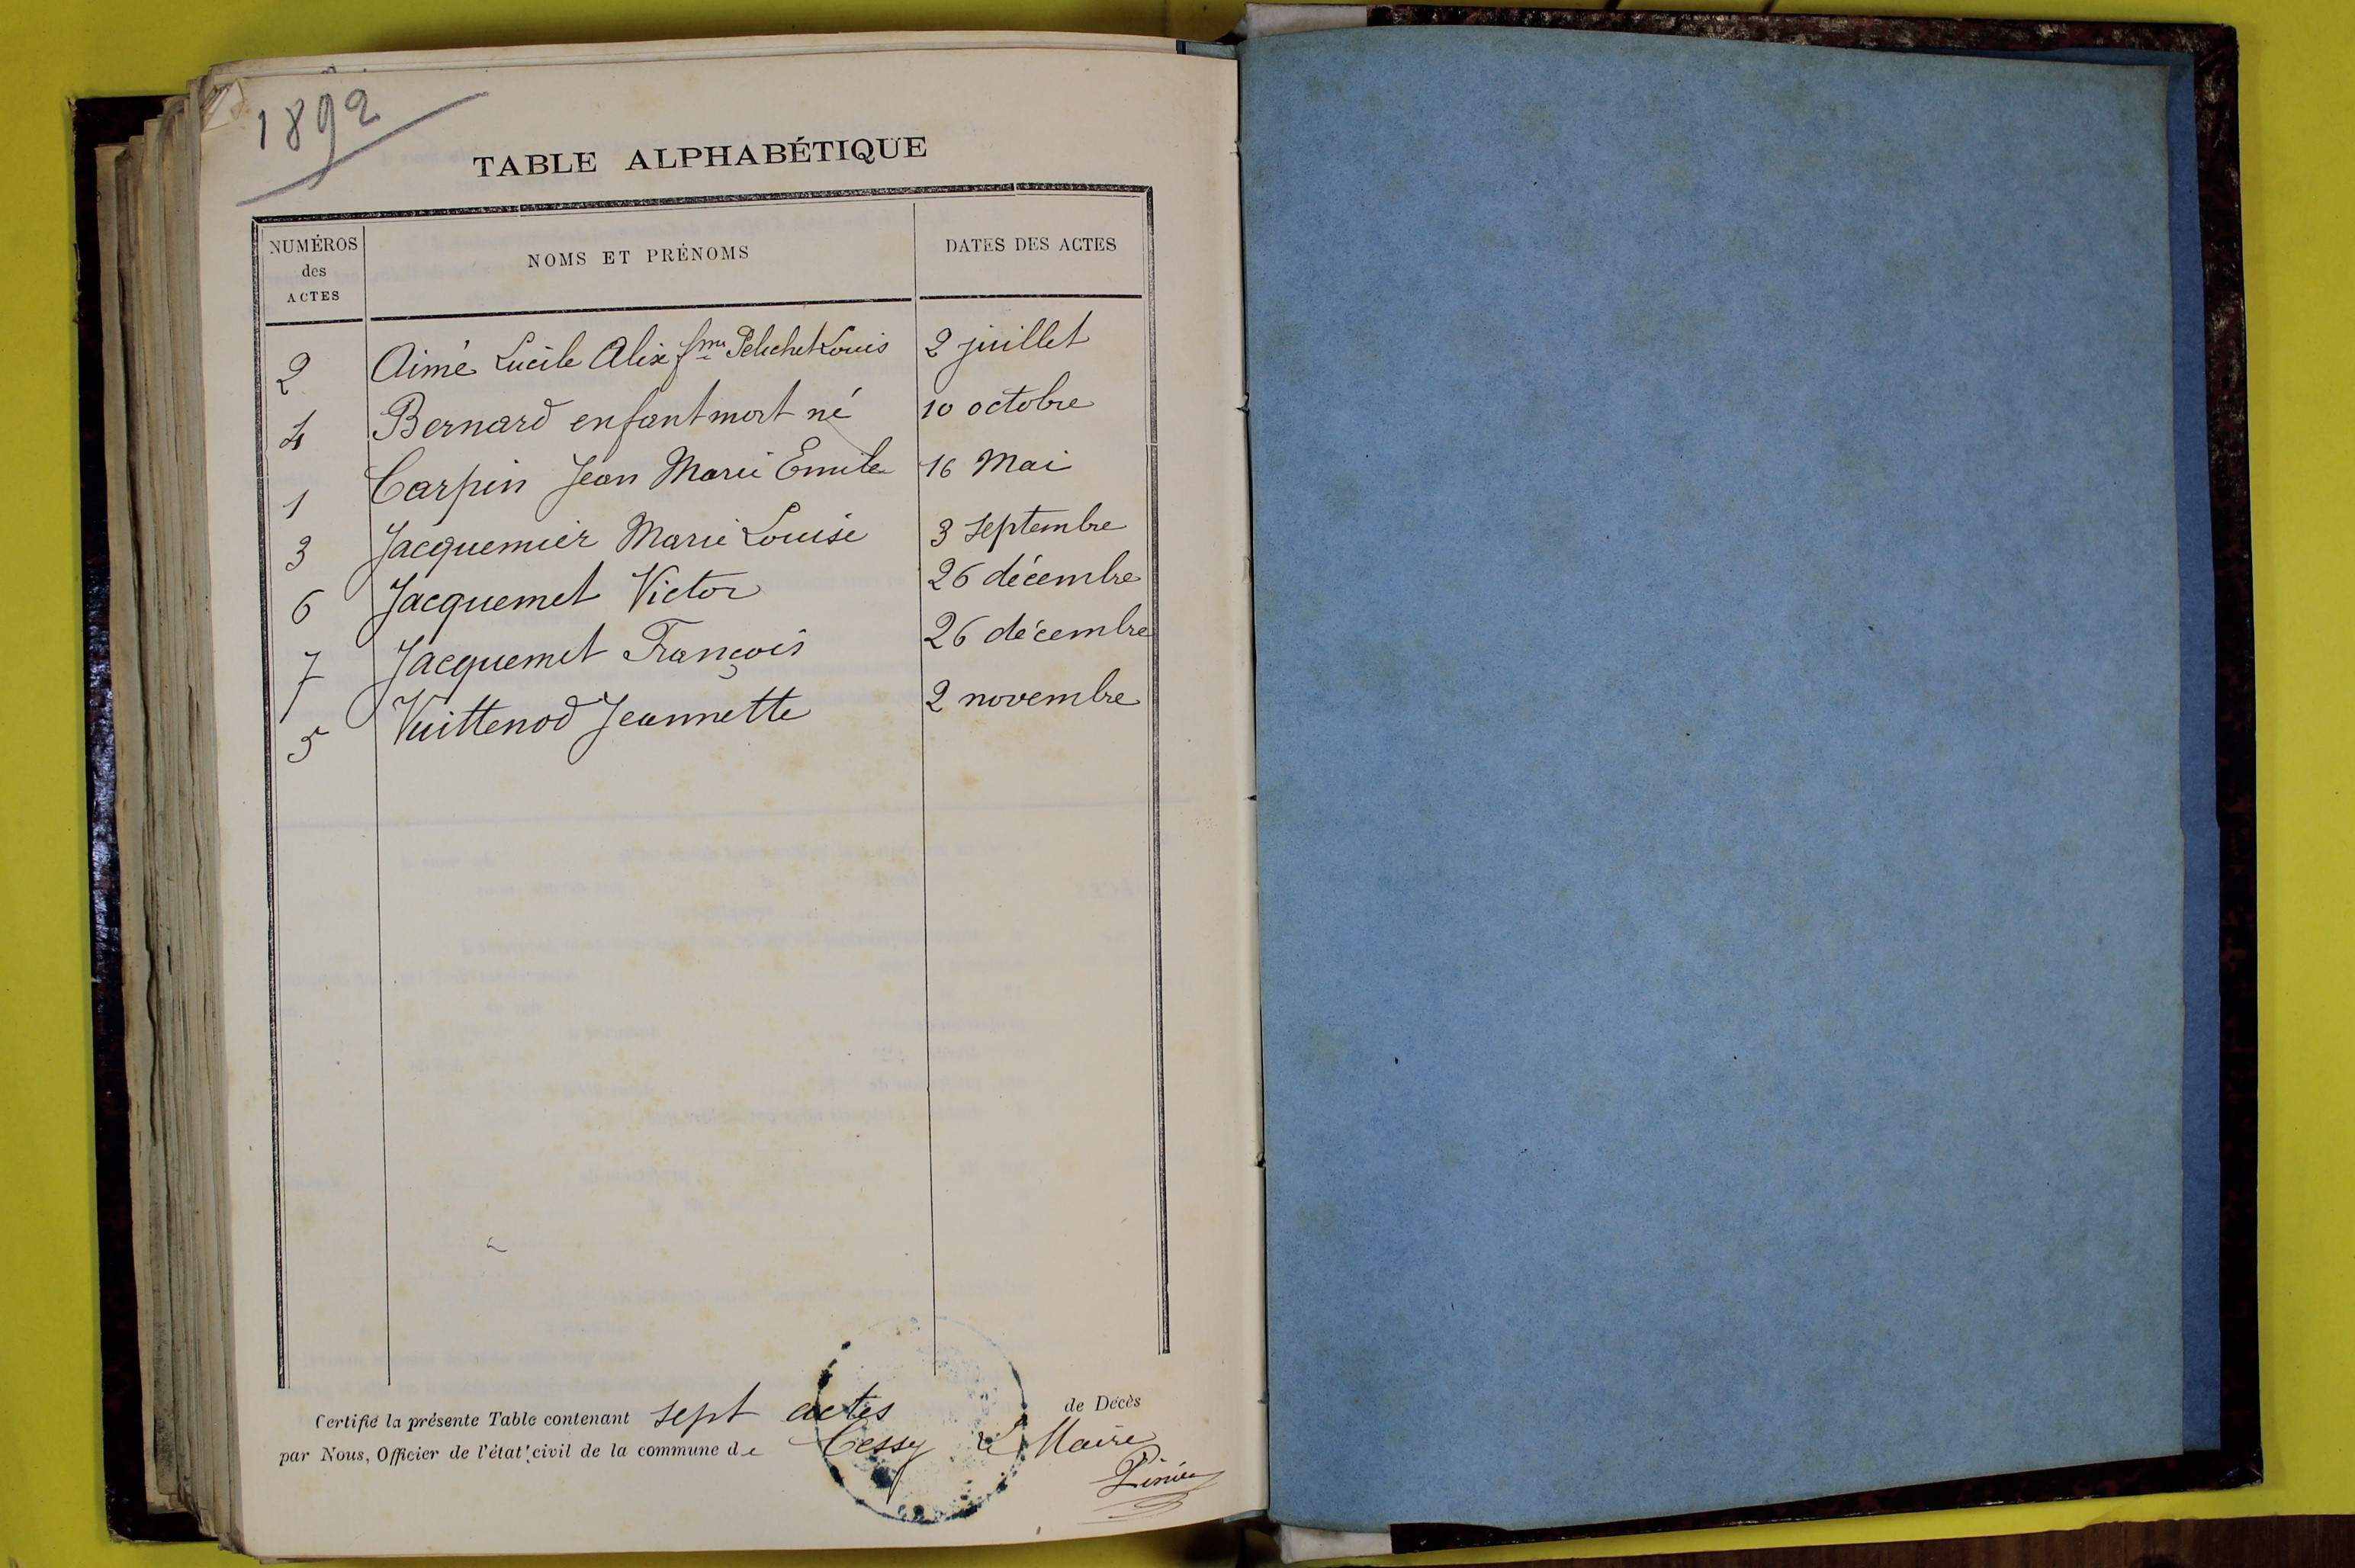 1892
TABLE ALPHABÉTIQUE
NUMÉROS des ACTES NOMS ET PRÉNOMS DATES DES ACTES
2 Aimé Lucile Alix fme Pelichet Louis 2 juillet
4 Bernard enfant mort né 10 octobre
1 Carpin Jean Marie Emile 16 Mai
3 Jacquemier Marie Louise 3 septembre
6 Jacquemet Victor 26 décembre
7 Jacquemet François 26 décembre
5 Vuittenod Jeannette 2 novembre
Certifié la présente Table contenant sept actes de Décès
par Nous, Officier de l'état civil de la commune de Cessy Le Maire